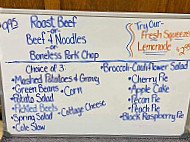 Roast Beef
-or-
Beef & Noodles
-or-
Boneless Pork Chop
Try Our
Fresh Squeezed
Lemonade
Choice of 3:
• Mashed Potatoes & Gravy
• Green Beans
• Corn
• Potato Salad
• Pickled Beets
• Cottage Cheese
• Spring Salad
• Cole Slaw
• Broccoli-Cauliflower Salad
• Cherry Pie
• Apple Cake
• Pecan Pie
• Peach Pie
• Black Raspberry Pie